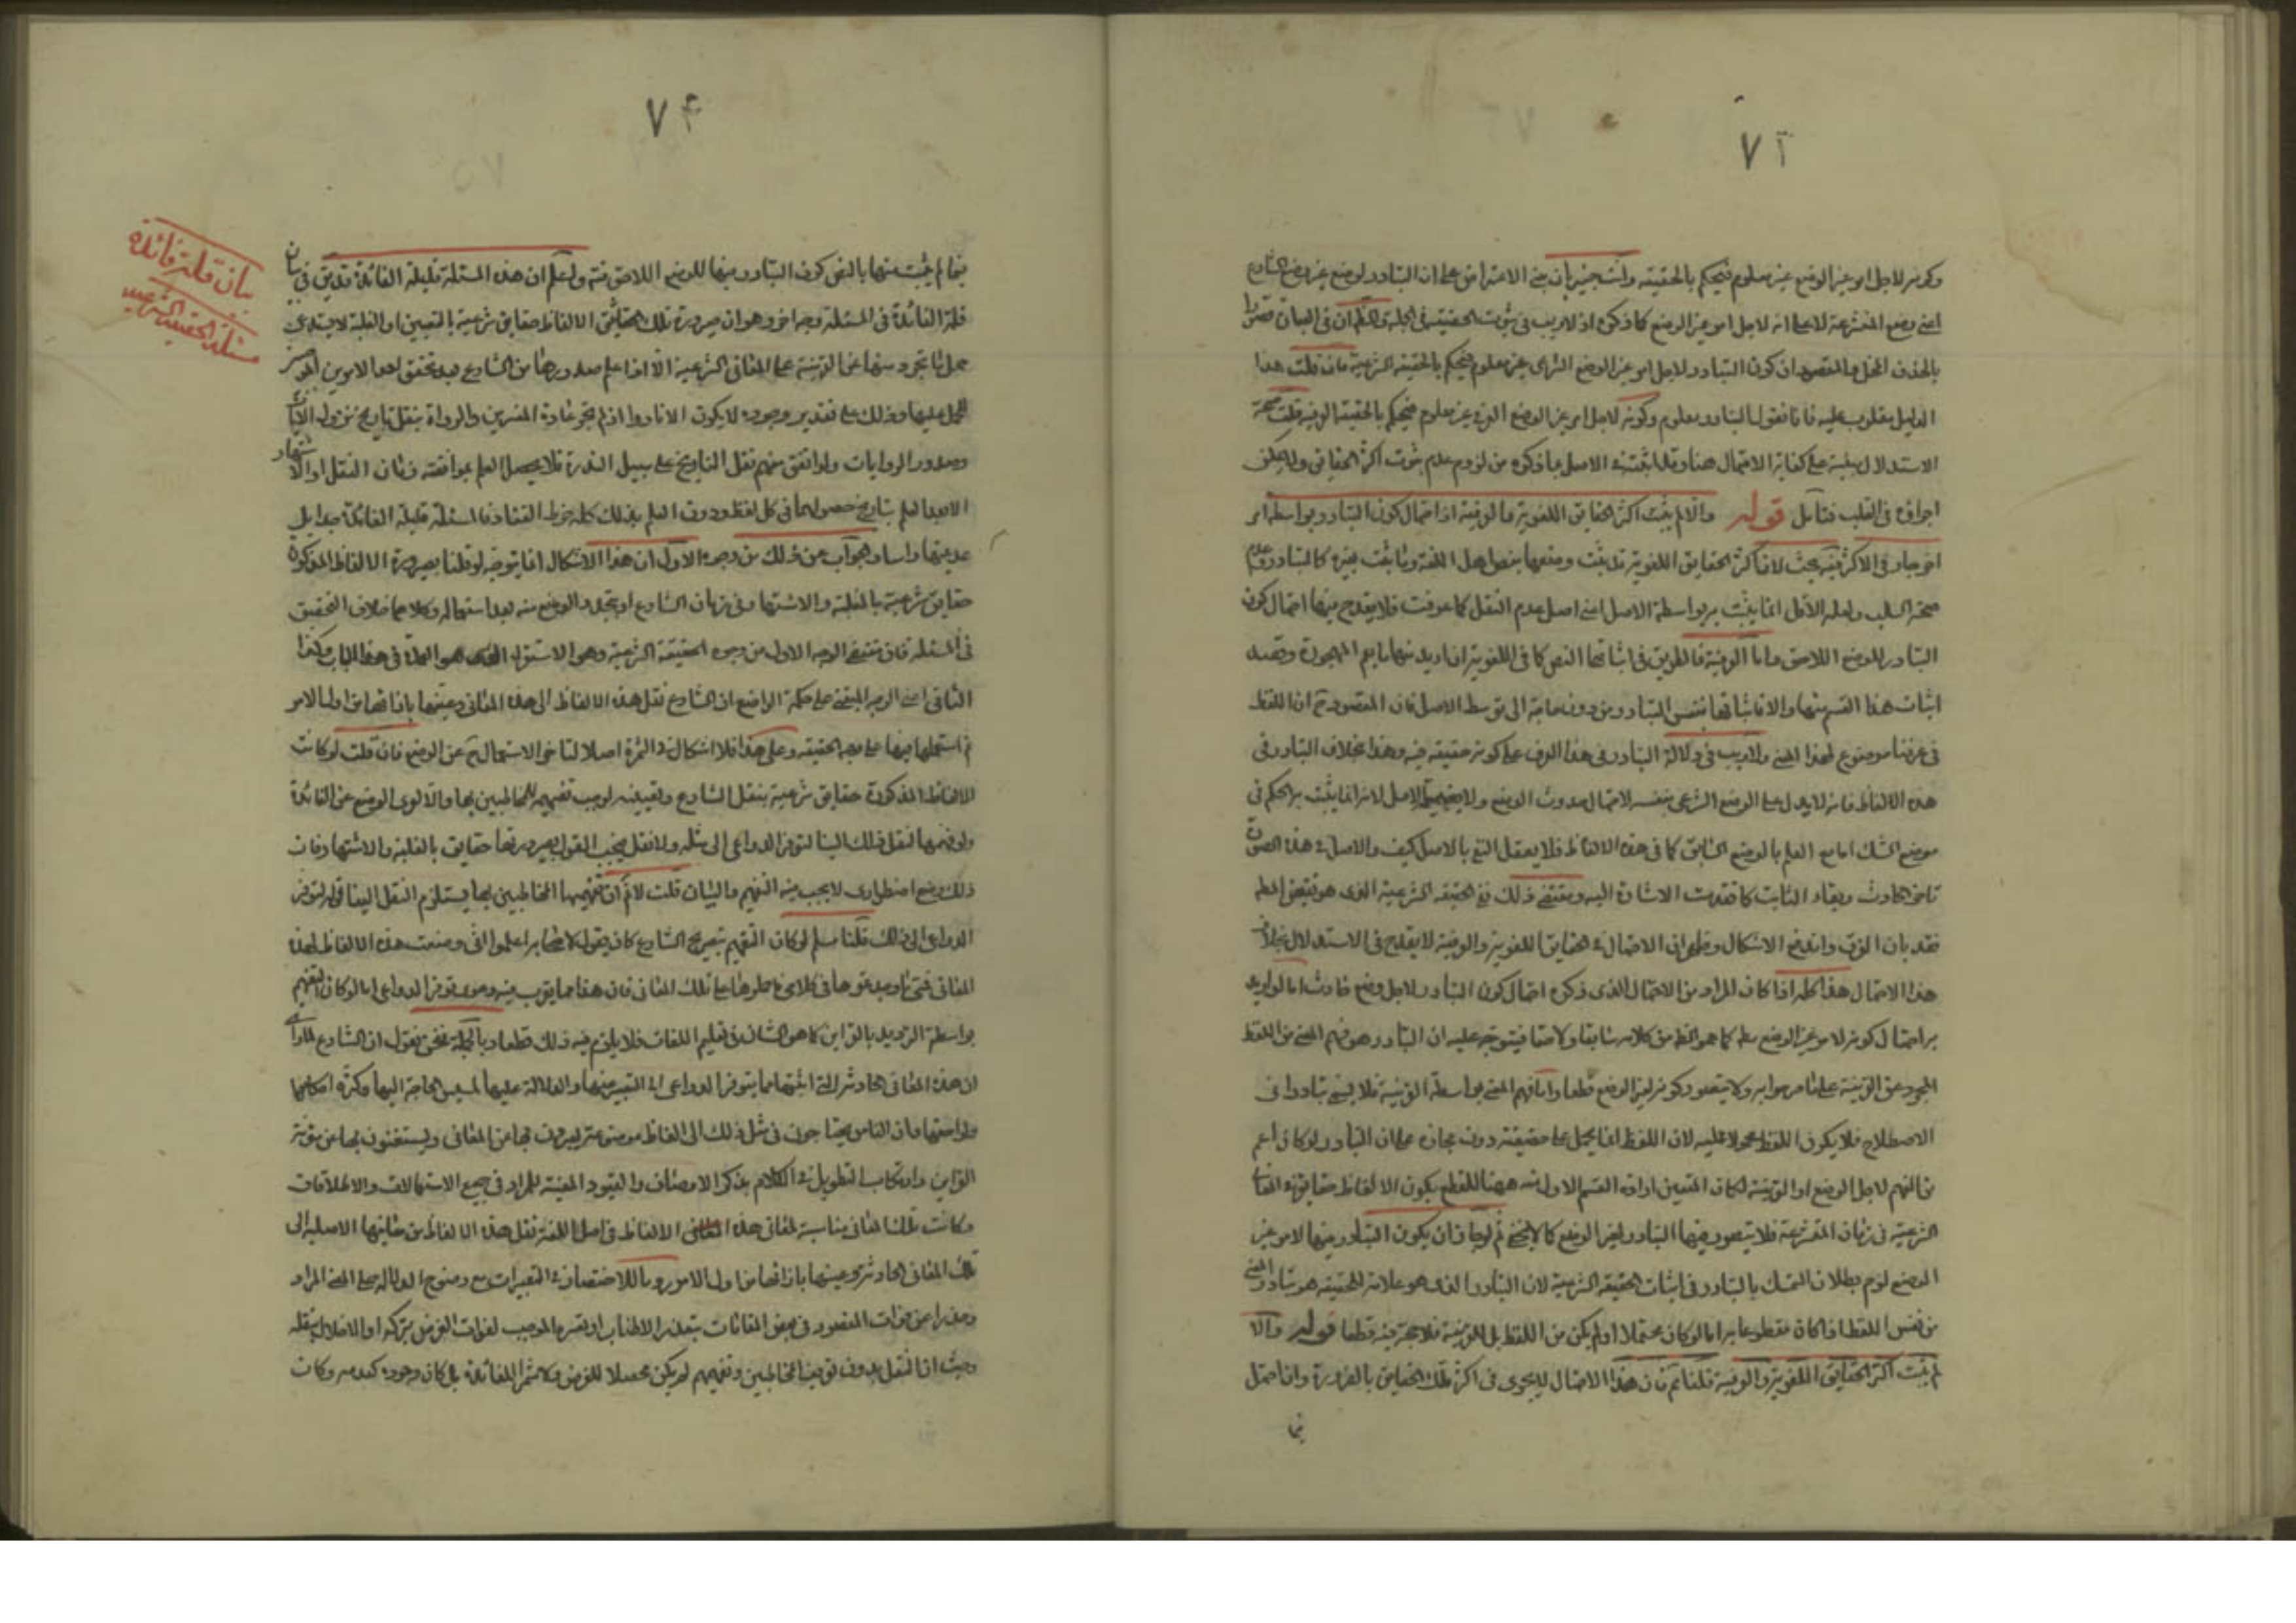 ٧٣
وكونه لاجل امر غير الوضع غير معلوم فيحكم بالحقيقة وانت خبير بان الاعتراض على ان التبادر لوضع غير وضع الشارع
اعنى وضع المتشرعة لا على انه لاجل امر غير الوضع كما ذكره اذ لا ريب فى ثبوت الحقيقة فى الجملة والظاهر ان فى البيان قصورا
بالحذف المخل والمقصود ان كون التبادر لاجل امر غير الوضع الشرعى غير معلوم فيحكم بالحقيقة الشرعية فان قلت هذا
الدليل مقلوب عليه فانا نقول التبادر معلوم وكونه لاجل امر غير الوضع العرفى غير معلوم فيحكم بالحقيقة العرفية قلت صحة
الاستدلال مبنية على كفاية الاحتمال هنا وقد اثبته الاصل بما ذكره من لزوم عدم ثبوت اكثر الحقائق ولا يمكن
اجراؤه فى القلب فتأمل قوله والا لم يثبت اكثر الحقايق اللغوية والعرفية اذ احتمال كون التبادر بواسطة امر
اخر جار فى الاكثر فيه بحث لان اكثر الحقايق اللغوية قد يثبت وضعها بنص اهل اللغة وما يثبت بغيره كالتبادر وعدم
صحة السلب ولعله الاقل انما يثبت بواسطة الاصل اعنى اصل عدم النقل كما عرفت فلا يقدح فيها احتمال كون
التبادر للوضع اللاحق واما العرفية فالطريق فى اثباتها النص كما فى اللغوية ان اريد بها ما يعم المهجورة وقصد
اثبات هذا القسم منها والا فاثباتها بنفس التبادر من دون حاجة الى توسط الاصل فان المقصود ح ان اللفظ
فى عرفنا موضوع لهذا المعنى ولا ريب فى دلالة التبادر فى هذا العرف على كونه حقيقة فيه وهذا بخلاف التبادر فى
هذه الالفاظ فانه لا يدل على الوضع الشرعى بنفسه لاحتمال حدوث الوضع ولا بضميمة الاصل لانه انما يثبت به الحكم فى
موضع الشك اما مع العلم بالوضع السابق كما فى هذه الالفاظ فلا يعقل النفى بالاصل كيف والاصل فى هذه الصورة
تاخر الحادث وبقاء الثابت كما تقدمت الاشارة اليه ومقتضى ذلك نفى الحقيقة الشرعية الذى هو نقيض المط
فقد بان الفرق واندفع الاشكال وظهر ان الاحتمال فى الحقايق اللغوية والعرفية لا يقدح فى الاستدلال بخلاف
هذا الاحتمال هذا كله اذا كان المراد من الاحتمال الذى ذكره احتمال كون التبادر لاجل وضع حادث اما لو اريد
به احتمال كونه لامر غير الوضع مط كما هو الظ من كلامه سابقا ولاحقا فيتوجه عليه ان التبادر هو فهم المعنى من اللفظ
المجرد عن القرينة على ما صرحوا به ولا يتصور كونه لغير الوضع قطعا واما فهم المعنى بواسطة القرينة فلا يسمى تبادرا فى
الاصطلاح فلا يكون اللفظ محمولا عليه لان اللفظ انما يحمل على حقيقته دون مجازه على ان التبادر لو كان اعم
من الفهم لاجل الوضع او القرينة لكان المتعين ارادة القسم الاول منه ههنا للقطع بكون الالفاظ حقايق فى المعانى
الشرعية فى زمان المتشرعة فلا يتصور فيها التبادر لغير الوضع كما لا يخفى ثم لو جاز ان يكون التبادر فيها لامر غير
الوضع لزم بطلان التمسك بالتبادر فى اثبات الحقيقة الشرعية لان التبادر الذى هو علامة للحقيقة هو تبادر المعنى
من نفس اللفظ اذا كان مقطوعا به اما لو كان محتملا او لم يكن من اللفظ بل للقرينة فلا حجة فيه قطعا قوله والا
لم يثبت اكثر الحقايق اللغوية والعرفية قلنا ثم فان هذا الاحتمال لا يجرى فى اكثر تلك الحقايق بالضرورة وانما احتمل
فيما
٧٤
فيما لم يثبت منها بالنص كون التبادر منها للوضع اللاحق منه ولتعلم ان هذه المسئلة قليلة الفائدة قد بين فى بيان
قلة الفائدة فى المسئلة وجه اخر وهو ان صيرورة تلك الالفاظ حقايق شرعية بالتعيين او الغلبة لا يستدعى
حمل ما تجرد منها عن القرينة على المعانى الشرعية الا اذا علم صدورها من الشارع بعد تحقق احد الامرين الموجبين
للحمل عليها وذلك على تقدير وجوده لا يكون الا نادرا اذ لم تجر عادة المفسرين والرواة بنقل تاريخ نزول الآيات
وصدور الروايات ولو اتفق منهم نقل التاريخ على سبيل الندرة فلا يحصل العلم بموافقته زمان النقل او الاشتهار
الا بعد العلم بتاريخ حصولهما فى كل لفظ ودون العلم بذلك كله خرط القتاد فالمسئلة قليلة الفائدة جدا بل
عديمتها راسا والجواب عن ذلك من وجوه الاول ان هذا الاشكال انما يتوجه لو قلنا بصيرورة الالفاظ المذكورة
حقايق شرعية بالغلبة والاشتهار فى زمان الشارع او بتجدد الوضع منه بعد استعماله وكلاهما خلاف التحقيق
فى المسئلة فان مقتضى الوجه الاول من وجوه الحقيقة الشرعية وهو الاستقراء الذى هو العمدة فى هذا الباب وكذا
الثانى اعنى الوجه المبنى على حكمة الواضع ان الشارع نقل هذه الالفاظ الى هذه المعانى وعينها بازائها من اول الامر
ثم استعملها فيها على وجه الحقيقة وعلى هذا فلا اشكال فى الثمرة اصلا لتاخر الاستعمال ح عن الوضع فان قلت لو كانت
الالفاظ المذكورة حقايق شرعية بنقل الشارع وتعيينه لوجب تفهيمه للمخاطبين بها والا لعرى الوضع عن الفائدة
ولو فهمها لنقل ذلك الينا لتوفر الدواعى الى مثله ولا نقل فيجب القول بصيرورتها حقايق بالغلبة والاشتهار فان
ذلك وضع اضطرارى لا يجب فيه التفهيم والبيان قلت لا ثم ان تفهيمها المخاطبين بها يستلزم النقل الينا قوله لتوفر
الدواعى الى ذلك قلنا مسلم لو كان التفهيم بتصريح الشارع كان يقول لاصحابه اعلموا انى وضعت هذه الالفاظ لهذه
المعانى فمتى وجدتموها فى كلامى فاحملوها على تلك المعانى فان هذا مما يقرب فيه دعوى توفر الدواعى اما لو كان التفهيم
بواسطة الترديد بالقراين كما هو الشان فى تعليم اللغات فلا يلزم فيه ذلك قطعا وبالجملة فنحن نقول ان الشارع لما راى
ان هذه المعانى الحادثة التى اثبتها مما يتوفر الدواعى الى التعبير عنها والدلالة عليها لمسيس الحاجة اليها وكثرة احكامها
ولواحقها فان الناس يحتاجون فى مثل ذلك الى الفاظ موضوعة يعبرون بها عن المعانى ويستغنون بها عن مؤنة
القراين وارتكاب التطويل فى الكلام بذكر الاوصاف والقيود المعينة للمراد فى جميع الاستعمالات والاطلاقات
وكانت تلك المعانى مناسبة لمعانى هذه الالفاظ فى اصل اللغة نقل هذه الالفاظ من معانيها الاصلية الى
تلك المعانى الحادثة وعينها بازائها من اول الامر روما للاختصار فى التعبيرات مع وضوح الدلالة على المعنى المراد
وحذرا عن فوات المقصود فى بعض المقامات بتعذر الاطناب او تعسره الموجب لفوات الغرض بتركه او الاخلال بنقله
وحيث ان النقل بدون توقيف المخاطبين وتفهيمهم لم يكن محصلا للغرض ولا مثمرا للفائدة بل كان وجوده كعدمه وكان
بيان قلة فائدة
مسئلة الحقيقة الشرعية